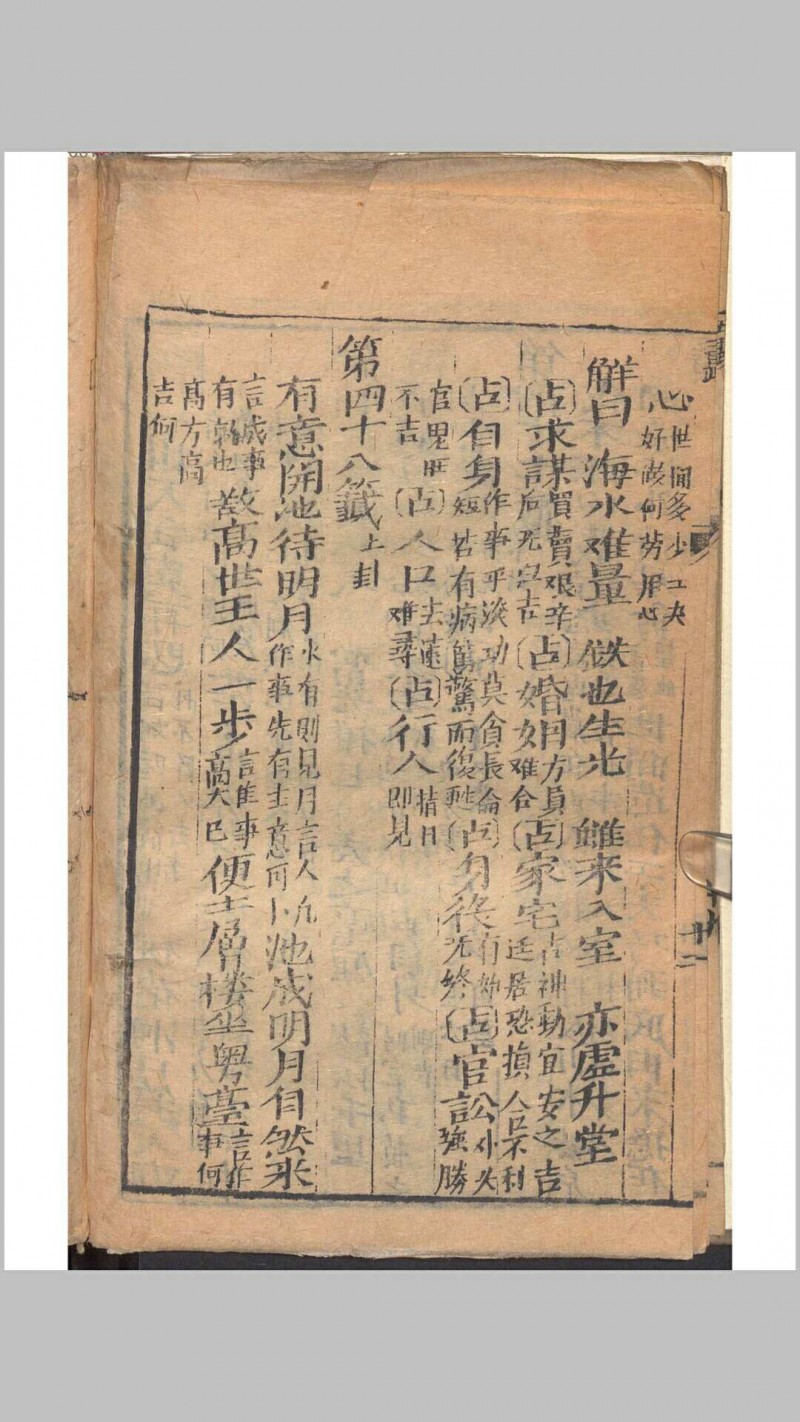 心 世間多少工夫
好歹何勞用心
解曰 海水难量 鉄也生光 雖来入室 亦虛升堂
占求謀 買賣艰辛 后死 吉 占婚 因方員 女难合 占家宅 古神動宜安之吉 迁居恐損人合不利
占自身 作事平淡功莫貪長 短若有病篤驚而復甦 占身後 有 无終 占官訟 小失 強勝
官鬼旺 不吉 占人口 去遠 难尋 占行人 指日 即見
第四十八籤 上卦
有意開池待明月 水有則見月言人凡 作事先有主意可卜 池成明月自然来
言成事 有 也 教高世主人一步 言隹事 高大已 便 層樓坐 臺 言作 事何
高方高
吉何